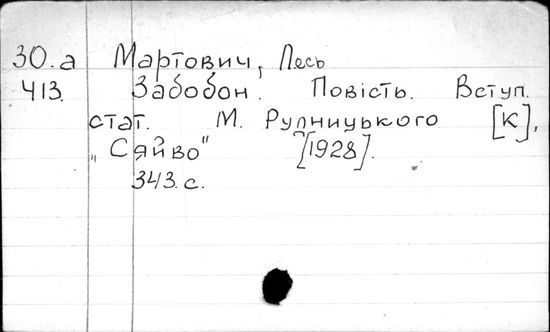 30.а Мартович, Лесь
413. Забобон. Повість. Вступ.
стат. М. Рудницького [К],
„Сяйво" [1928].
343.с.